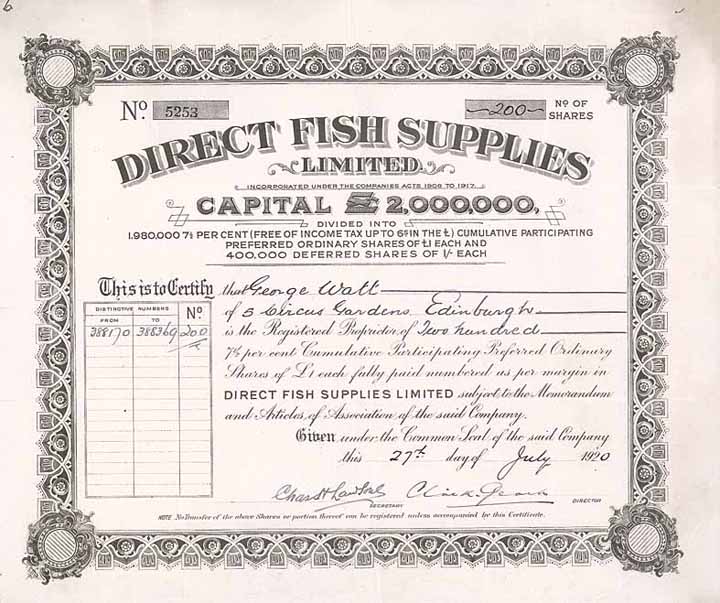 No. 5253
200 No OF SHARES
DIRECT FISH SUPPLIES
LIMITED.
INCORPORATED UNDER THE COMPANIES ACTS 1908 TO 1917.
CAPITAL £ 2,000,000,
DIVIDED INTO
1.980,000 7½ PER CENT (FREE OF INCOME TAX UP TO 6/- IN THE £) CUMULATIVE PARTICIPATING
PREFERRED ORDINARY SHARES OF £1 EACH AND
400.000 DEFERRED SHARES OF 1/- EACH
This is to Certify that George Watt
of 5 Circus Gardens Edinburgh
is the Registered Proprietor of Two hundred
7½ per cent Cumulative Participating Preferred Ordinary
Shares of £1 each fully paid numbered as per margin in
DIRECT FISH SUPPLIES LIMITED subject to the Memorandum
and Articles of Association of the said Company.
Given under the Common Seal of the said Company
this 27th day of July 1920
DISTINCTIVE NUMBERS No.
FROM TO
388170 388369 200
SECRETARY
DIRECTOR
NOTE No Transfer of the above Shares or portion thereof can be registered unless accompanied by this Certificate.